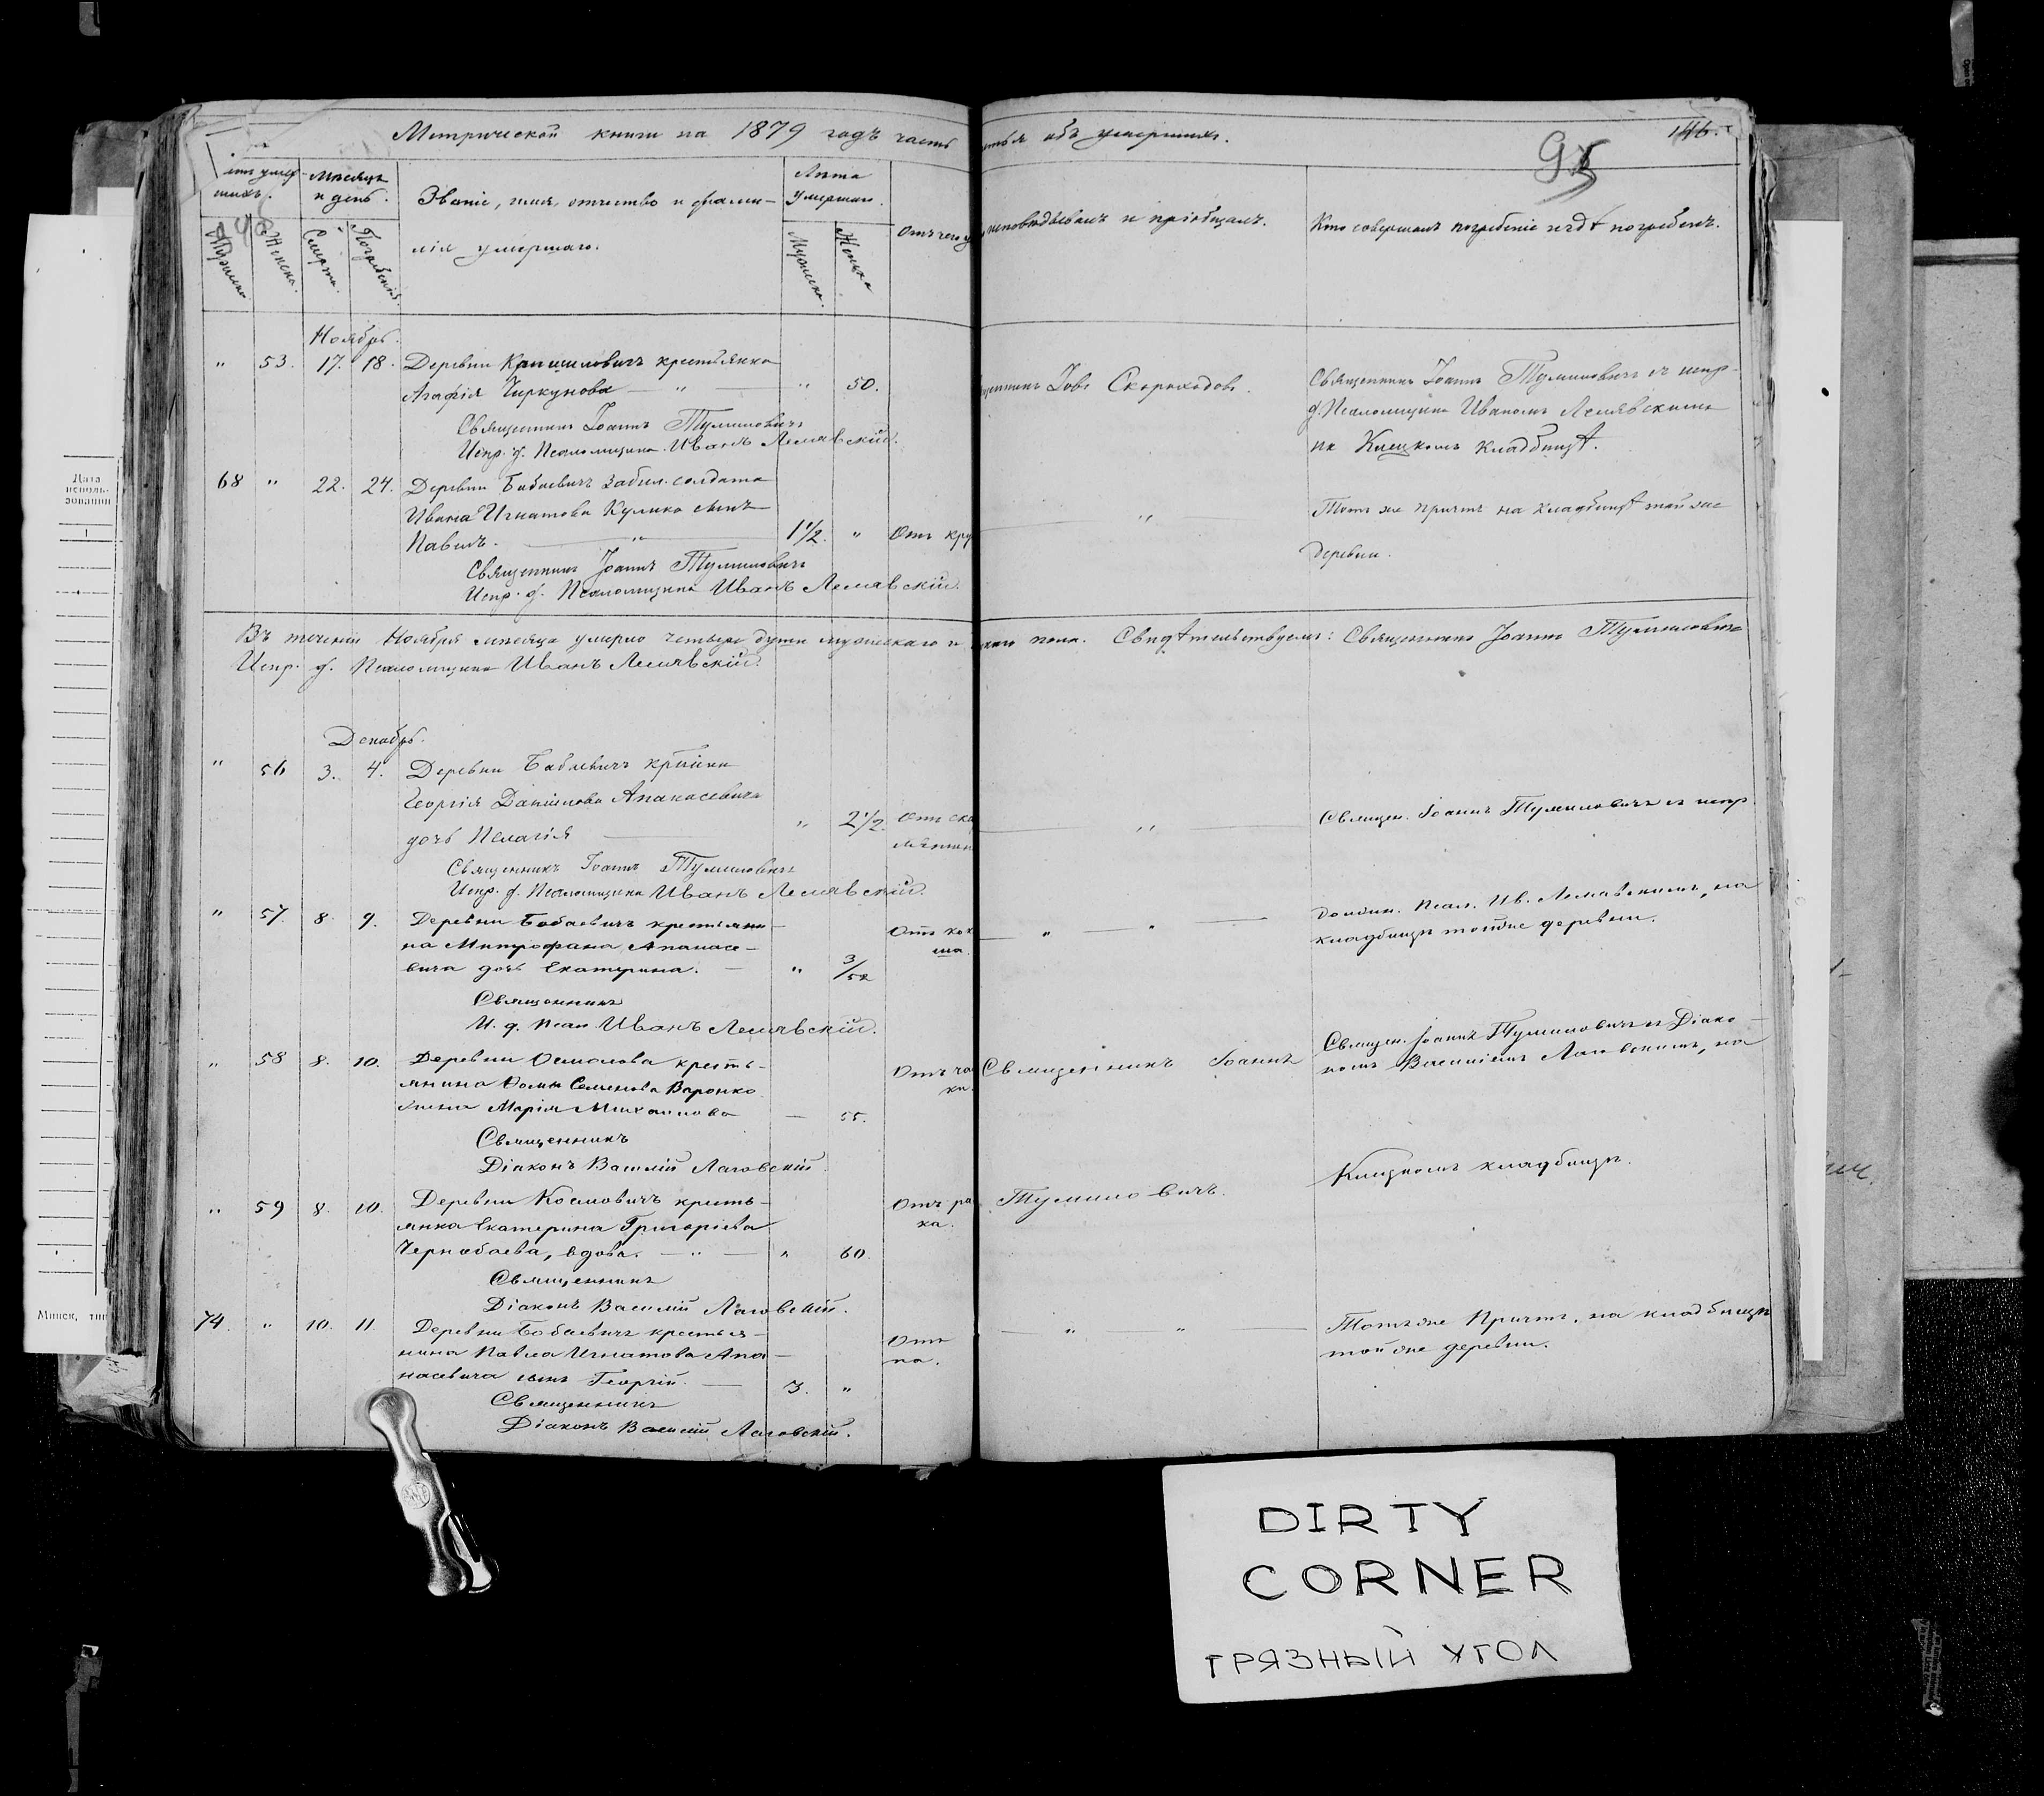 Метрической книги на 1879 годъ часть
объ умершихъ.
95
146.
Мѣсяцъ
и день.
Званіе, имя, отчество и фами-
лія умершаго.
Лѣта
умершаго.
Мужеска.
Женска.
Смерти.
Погребенія.
Мужеска.
Женска
Отъ чего
исповѣдывалъ и пріобщалъ.
Кто совершалъ погребеніе и гдѣ погребенъ.
Ноябрь.
" 53. 17. 18. Деревни крестьянка
Агафія Чиркунова — " — " 50.
Іовъ Скороходовъ.
Священникъ Іоаннъ Тумиловичъ
Испр. д. Псаломщика Иванъ Лемявскій.
Священникъ Іоаннъ Тумиловичъ съ испр.
д. Псаломщика Иваномъ Лемявскимъ
на Клецкомъ кладбищѣ.
68 " 22. 24. Деревни Бабаевичъ солдата
Ивана Игнатова Кулика сынъ
Павелъ. — " — 1 1/2. " Отъ кру
"
Священникъ Іоаннъ Тумиловичъ
Испр. д. Псаломщика Иванъ Лемявскій.
Тотъ же причтъ на кладбищѣ той же
деревни.
Въ теченіи Ноября мѣсяца умерло четыре души мужескаго и
пола. Свидѣтельствуемъ: Священникъ Іоаннъ Тумиловичъ
Испр. д. Псаломщика Иванъ Лемявскій.
Декабрь.
" 56 3. 4. Деревни Бабаевичъ
Георгія Даніилова Апанасевича
дочь Пелагія — " 2 1/2. Отъ ска
"
Священникъ Іоаннъ Тумиловичъ
Испр. д. Псаломщика Иванъ Лемявскій.
Священ. Іоаннъ Тумиловичъ съ испр.
должн. Псал. Ив. Лемявскимъ, на
кладбищѣ тойже деревни.
" 57. 8. 9. Деревни Бабаевичъ крестьяни-
на Митрофана Апанасе-
вича дочь Екатерина. — " 3/52
Отъ кок
ша.
" "
Священникъ
И. д. Псал. Иванъ Лемявскій.
" 58 8. 10. Деревни Осмолова кресть-
янина Ѳомы Семенова Воронко
жена Марія Михаилова — 55.
Отъ ча
ки.
Священникъ Іоаннъ
Священникъ
Діаконъ Василій Лаговскій.
Священ. Іоаннъ Тумиловичъ съ Діако-
номъ Василіемъ Лаговскимъ, на
Клецкомъ кладбищѣ.
" 59 8. 10. Деревни Космовичъ кресть-
янка Екатерина Григоріева
Чернобаева, вдова. — " — " 60.
Отъ ра
ка.
Тумиловичъ.
Священникъ
Діаконъ Василій Лаговскій.
74. " 10. 11. Деревни Бабаевичъ крестья-
нина Павла Игнатова Апа-
насевича сынъ Георгій. — 3. "
Отъ
па.
" "
Тотъ же Причтъ, на кладбищѣ
той же деревни.
Священникъ
Діаконъ Василій Лаговскій.
Дата
исполь-
зования
1
Минск, тип
DIRTY
CORNER
ГРЯЗНЫЙ УГОЛ